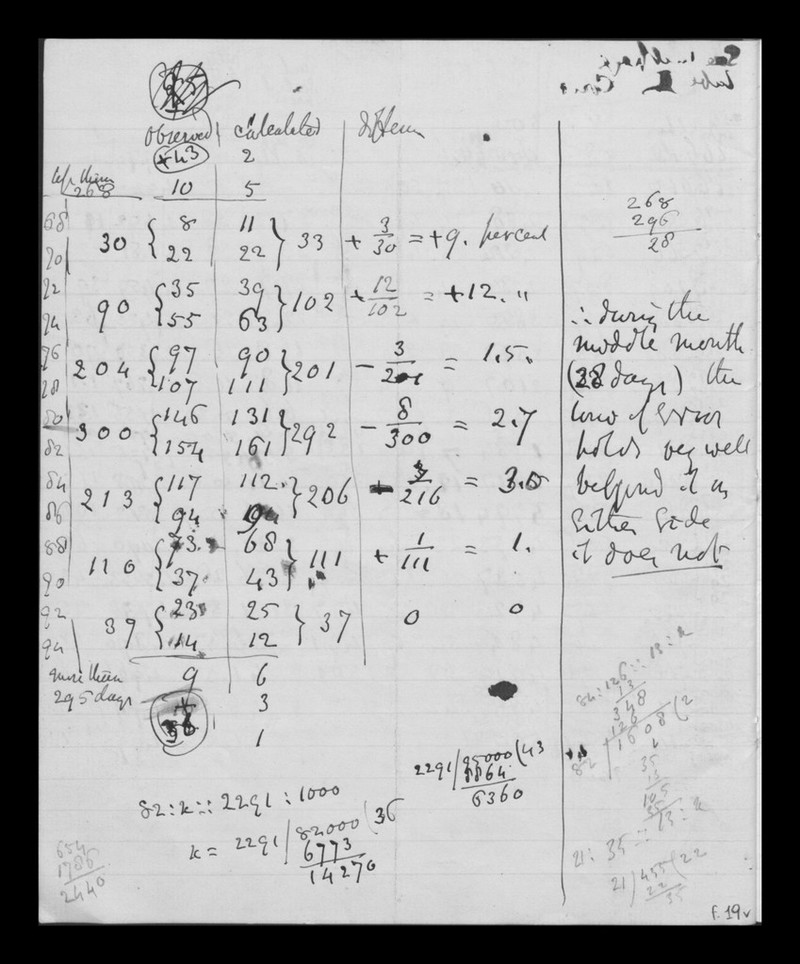 observed calculated differe
+43 2
less than 268 10 5
68 30 { 8 11 } 33 + 3/30 = +9. percent
70 22 22
72 90 { 35 39 } 102 + 12/102 = +12. "
74 55 63
76 204 { 97 90 } 201 - 3/201 = 1.5.
78 107 111
80 300 { 146 131 } 292 - 8/300 = 2.7
82 154 161
84 213 { 117 112 } 206 /216 = 3.0
86 94 94
88 110 { 73 68 } 111 + 1/111 = 1.
90 37 43
92 37 { 23 25 } 37 0 0
94 14 12
more than 9 6
295 days 3
1
268
296
28
∴ during the
middle month
(28 days) the
law of Error
holds very well
beyond it on
Either Side
it does not
82 : x :: 2291 : 1000
x = 2291 / 82000 ( 36
6773
14270
2291 / 95000 ( 43
8864
6360
654
1786
2440
84 : 126 :: 13 : x
13
348
126
82 1608 ( 2
35
13
105
35
21 : 35 :: 13 : x
21 / 455 ( 22
22
35
f. 19v